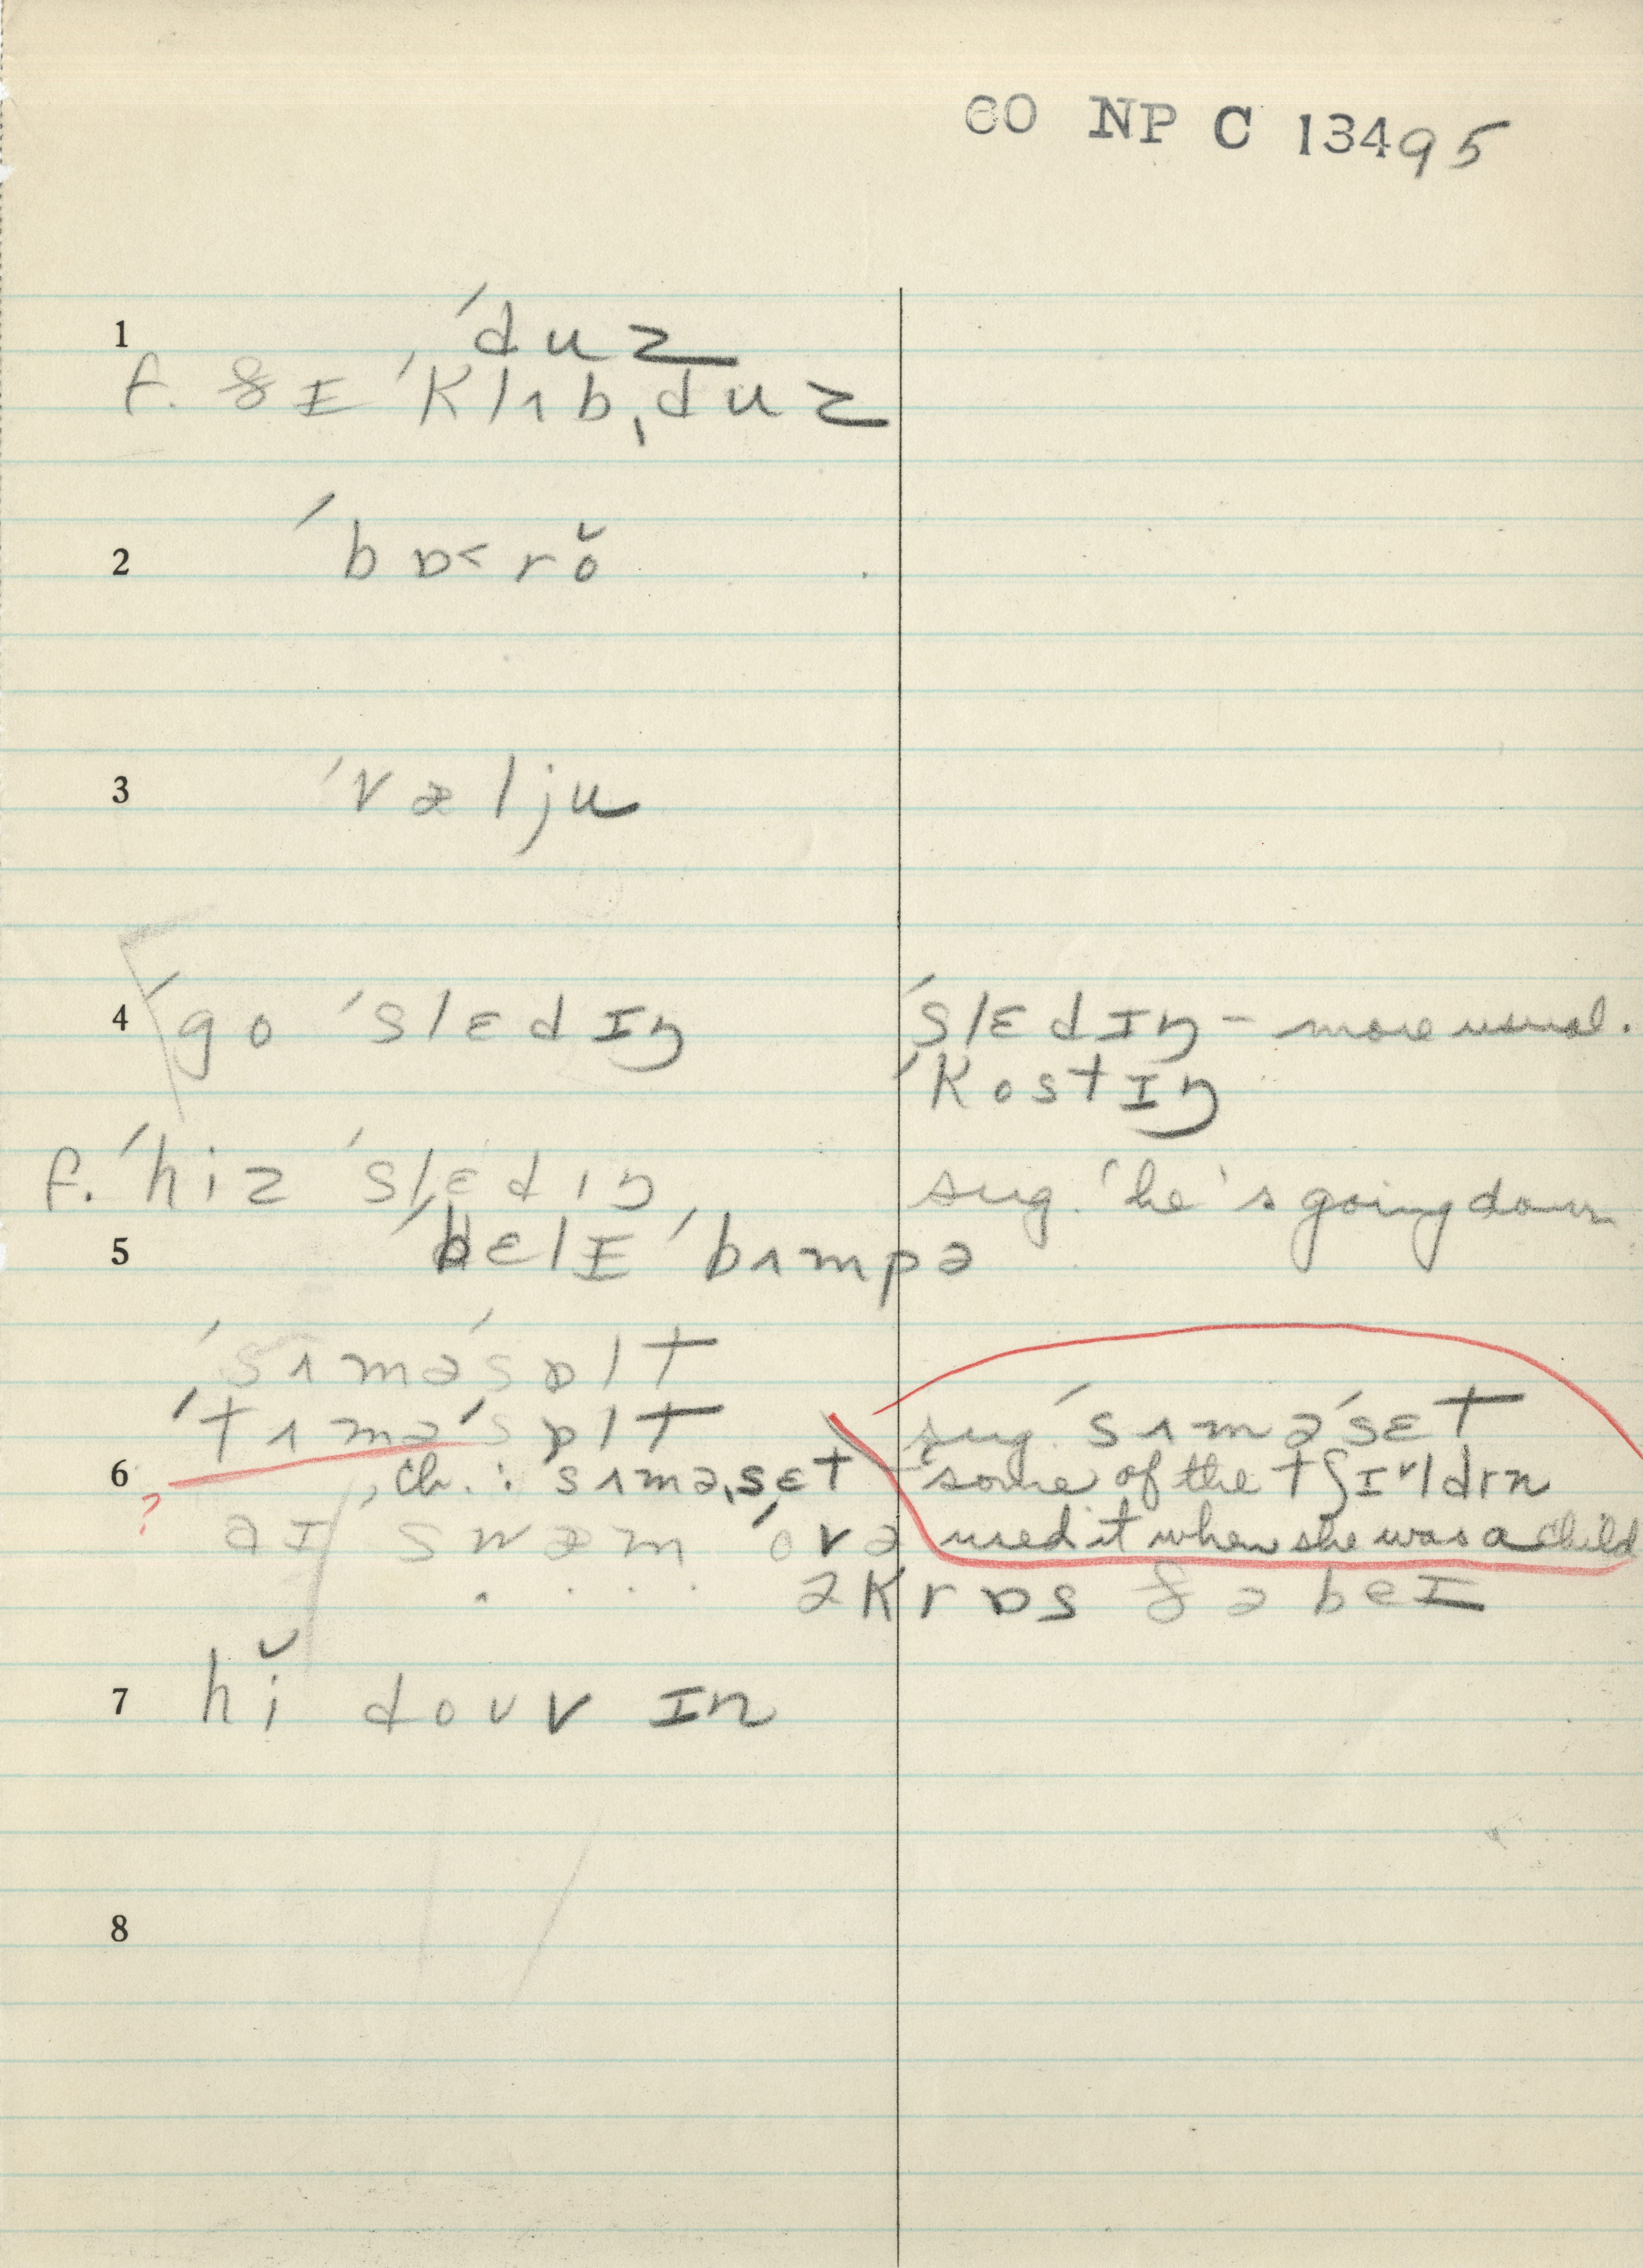 60 NP C 13495
1 ˈduz
f. ðɪ ˈklʌbˌduz
2 ˈbɒ<rŏ
3 ˈvælju
4 ˈgo ˈslɛdɪŋ ˈslɛdɪŋ – more usual.
ˈkostɪŋ
f. ˈhiz ˈslɛdɪŋ sug. 'he's going down
5 ˈbɛlɪ ˈbʌmpə
ˈsʌməˈsɒlt
ˈtʌməˈsɒlt sug. ˈsʌməˈsɛt
6 , ch. : sʌməˌsɛt – some of the tʃɪᵛldrn
? aɪ swæm ˈovə used it when she was a child
. . . . əkrɒs ðə beɪ
7 hĭ doʊv ɪn
8